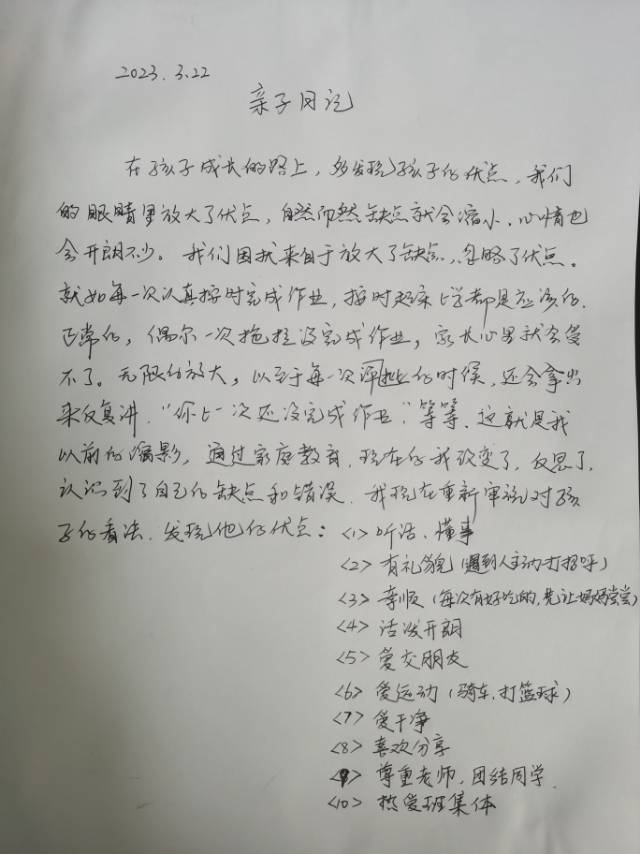 2023.3.22
亲子日记
在孩子成长的路上，多发现孩子的优点，我们
的眼睛里放大了优点，自然而然缺点就会缩小，心情也
会开朗不少。我们困扰来自于放大了缺点，忽略了优点。
就如每一次认真按时完成作业，按时起床上学都是应该的，
正常的，偶尔一次拖拉没完成作业，家长心里就会受
不了。无限的放大，以至于每一次评的时候，还会拿出
来反复讲，“你上一次还没完成作业”等等，这就是我
以前的缩影，通过家庭教育，现在的我改变了，反思了，
认识到了自己的缺点和错误，我现在重新审视对孩
子的看法，发现他的优点：<1>听话、懂事
<2>有礼貌（遇到人主动打招呼）
<3>孝顺（每次有好吃的，先让妈妈尝尝）
<4>活泼开朗
<5>爱交朋友
<6>爱运动（骑车，打篮球）
<7>爱干净
<8>喜欢分享
<9>尊重老师，团结同学
<10>热爱班集体